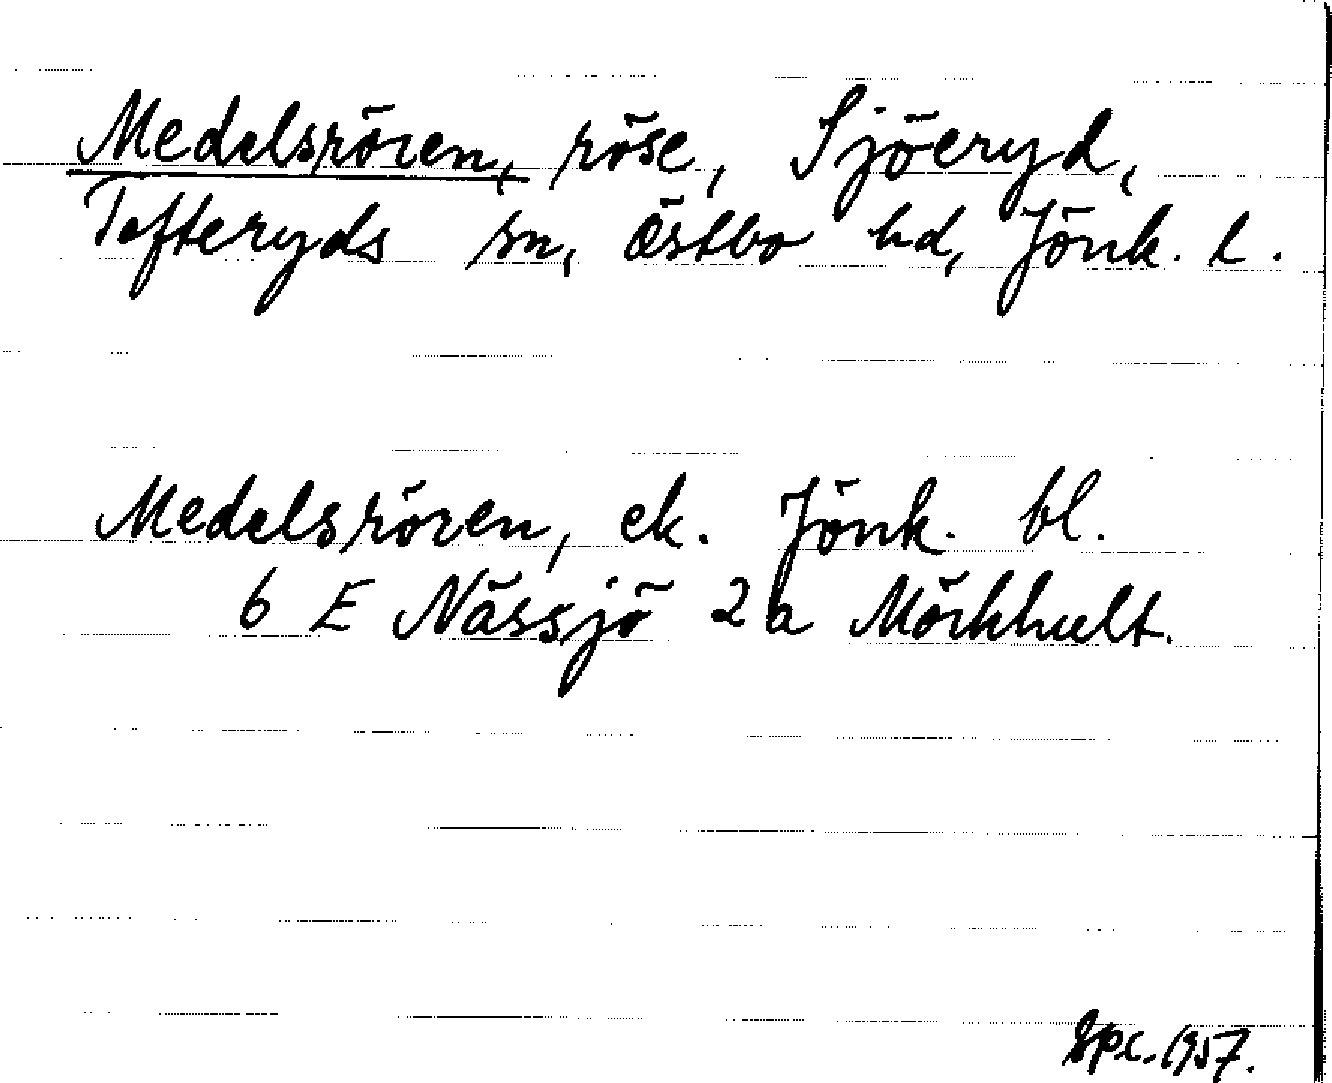 Medelsrören, röse, Sjöeryd,
Tofteryds sn, Östbo hd, Jönk. l.
Medelsrören, ek. Jönk. bl.
6 E Nässjö 2 a Mörkhult.
1957.